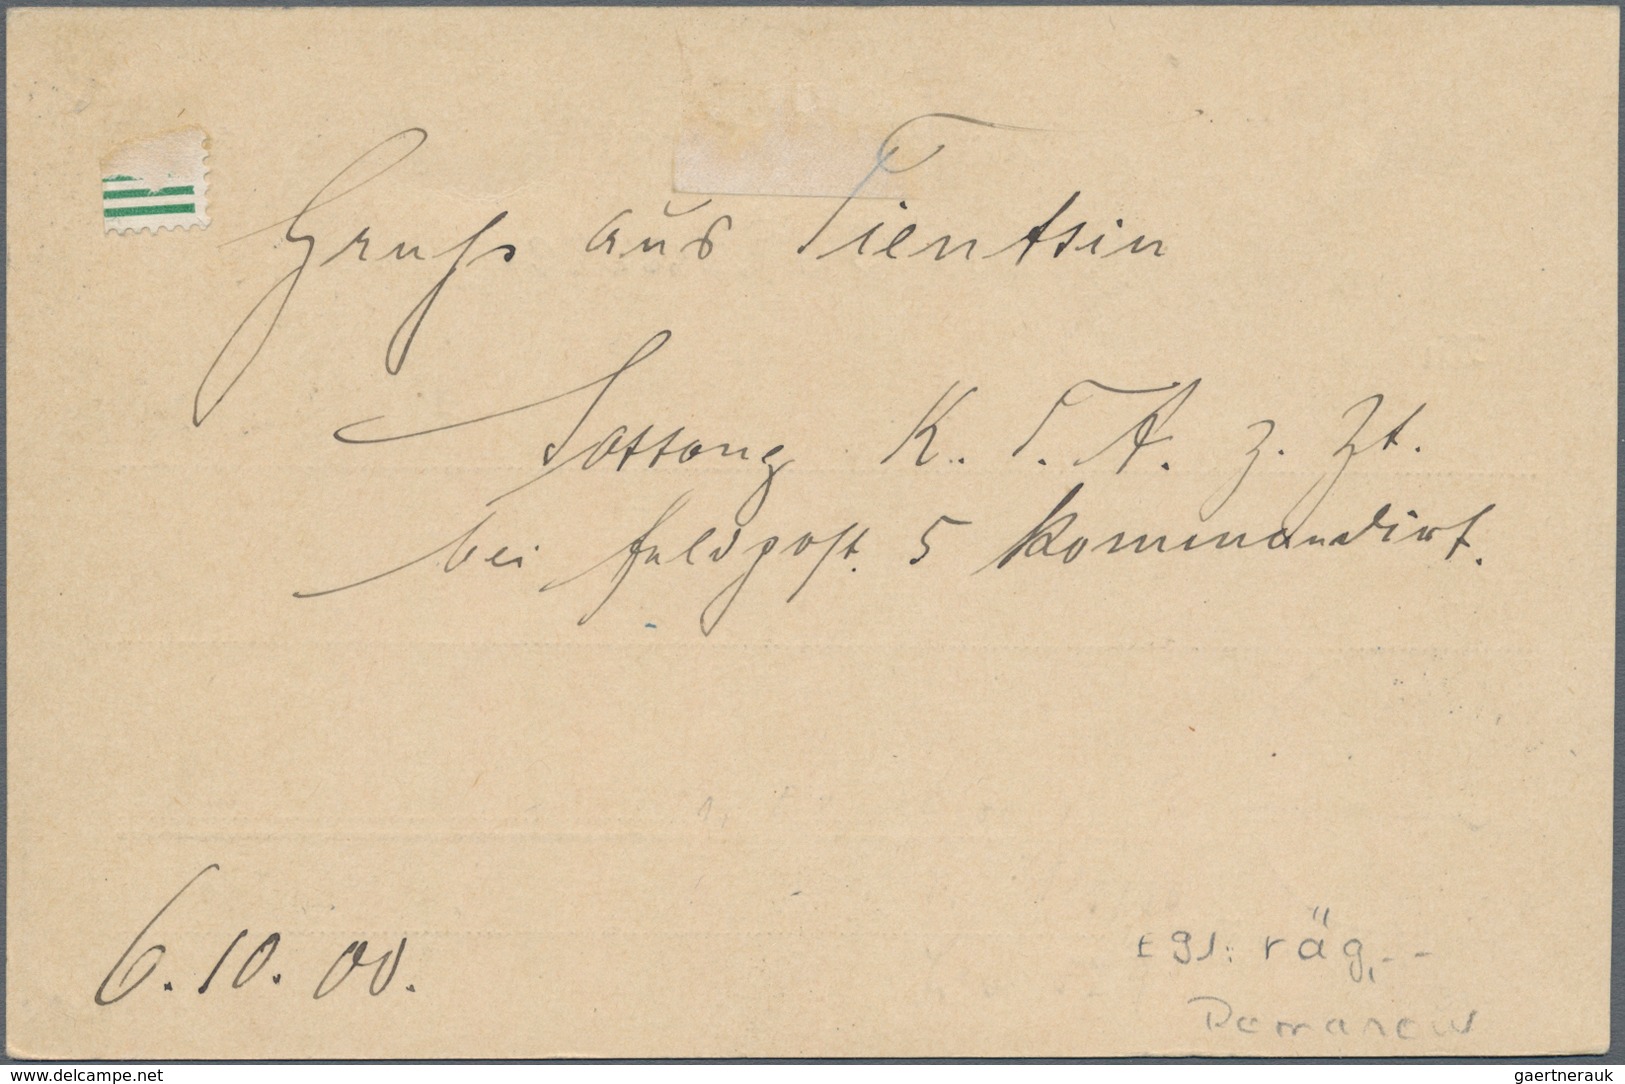 Gruß aus Tientsin
Sottong K. T. A. z. Zt.
bei Feldpost. 5 kommandirt.
6. 10. 00.
räg,--
www.delcampe.net
gaertnerauk